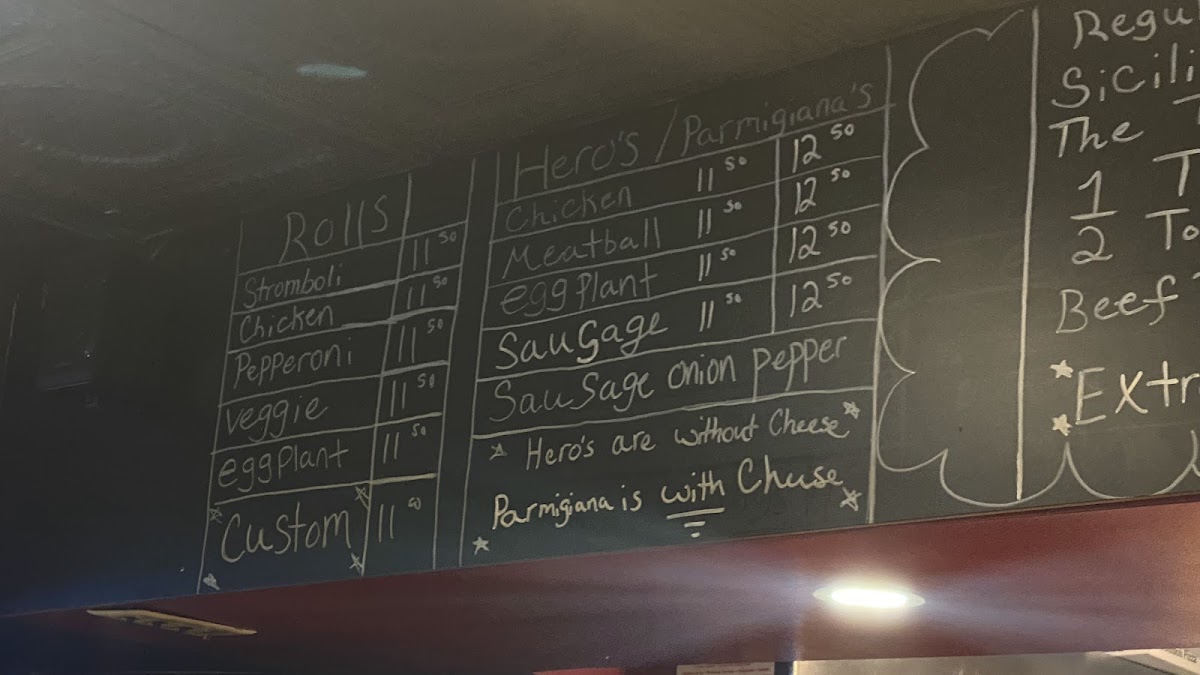 Rolls
Stromboli 11 50
Chicken 11 50
Pepperoni 11 50
Veggie 11 50
eggplant 11 50
Custom 11 50
Hero's / Parmigiana's
Chicken 11 50 12 50
Meatball 11 50 12 50
eggplant 11 50 12 50
Sausage 11 50 12 50
Sausage onion pepper
Hero's are without Cheese
Parmigiana is with Chuse
Regu
Sicili
The T
1 T
2 To
Beef
Extr